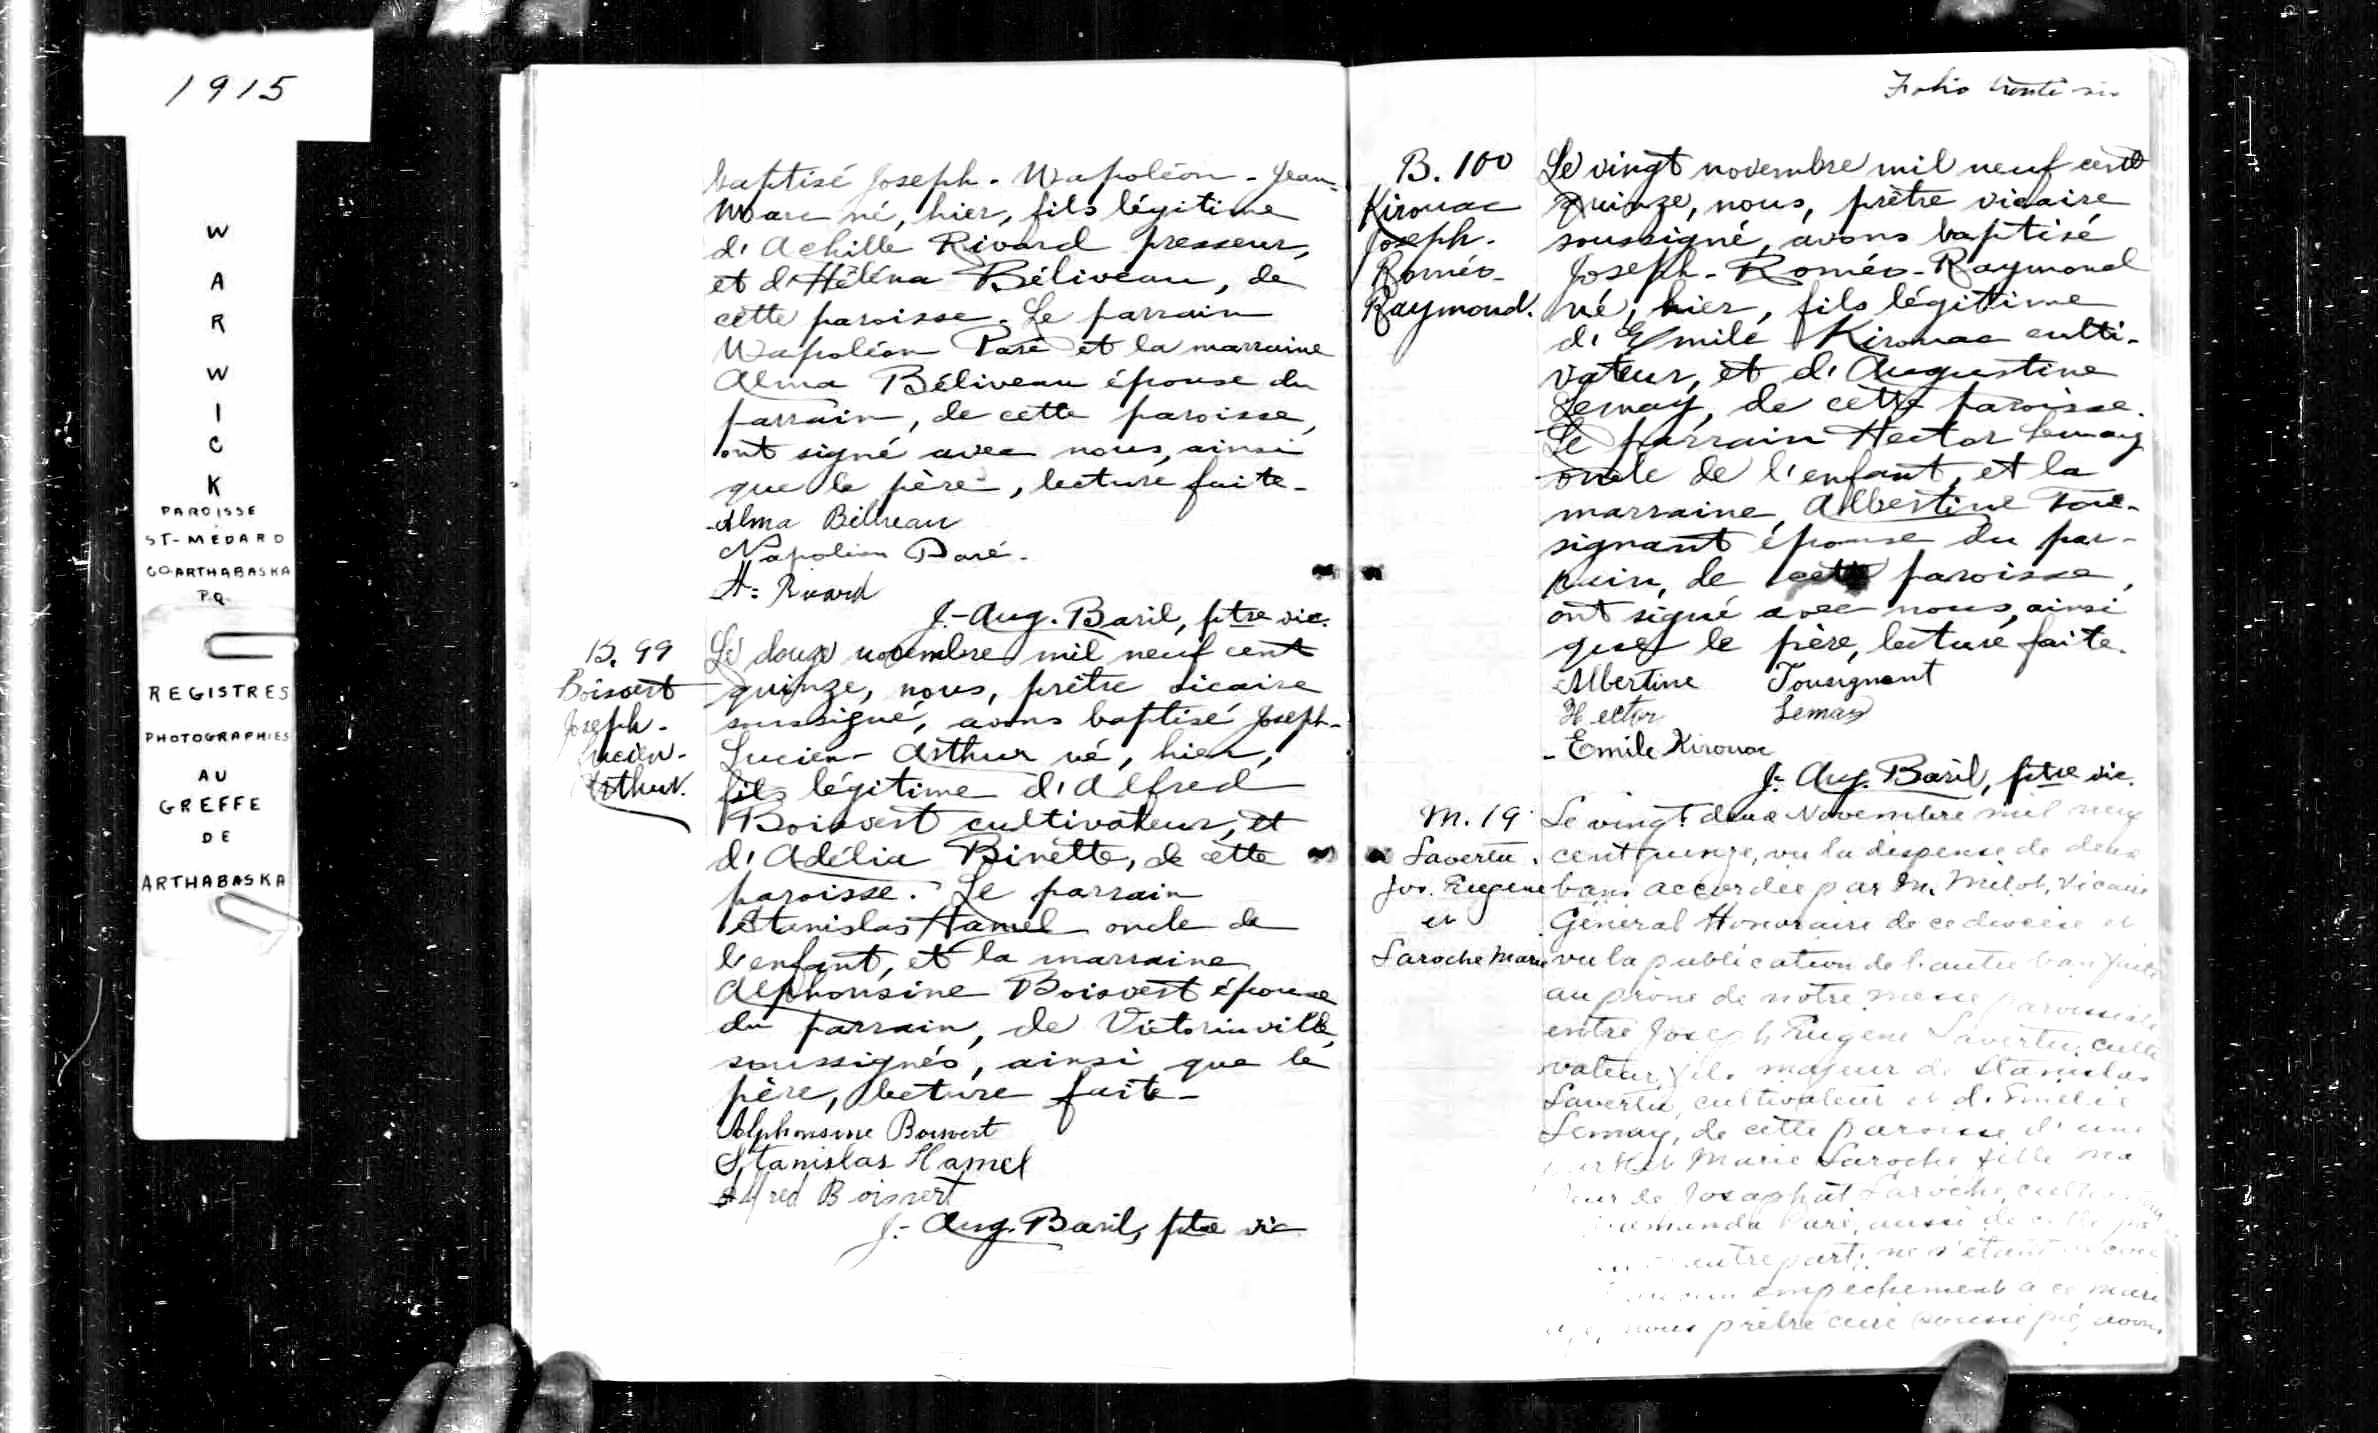 1915
WARWICK
PAROISSE
ST-MÉDARD
CO. ARTHABASKA
P.Q.
REGISTRES
PHOTOGRAPHIES
AU
GREFFE
DE
ARTHABASKA
baptisé Joseph-Napoléon-Jean-
Marc né, hier, fils légitime
d'Achille Rivard presseur,
et d'Héléna Béliveau, de
cette paroisse. Le parrain
Napoléon Paré et la marraine
Alma Béliveau épouse du
parrain, de cette paroisse,
ont signé avec nous, ainsi
que le père, lecture faite-
Alma Béliveau
Napoléon Paré.
A. Rivard
J.-Aug. Baril, ptre vic.
B. 99
Boisvert
Joseph-
Lucien-
Arthur.
Le douze novembre mil neuf cent
quinze, nous, prêtre vicaire
soussigné, avons baptisé Joseph-
Lucien-Arthur né, hier,
fils légitime d'Alfred
Boisvert cultivateur, et
d'Adélia Binette, de cette
paroisse. Le parrain
Stanislas Hamel oncle de
l'enfant, et la marraine
Alphonsine Boisvert épouse
du parrain, de Victoriaville,
soussignés, ainsi que le
père, lecture faite-
Alphonsine Boisvert
Stanislas Hamel
Alfred Boisvert
J.-Aug. Baril, ptre vic
Folio trente-six
B. 100
Kirouac
Joseph-
Roméo-
Raymond.
Le vingt novembre mil neuf cent
quinze, nous, prêtre vicaire
soussigné, avons baptisé
Joseph-Roméo-Raymond
né, hier, fils légitime
d'Emile Kirouac culti-
vateur, et d'Augustine
Lemay, de cette paroisse.
Le parrain Hector Lemay
oncle de l'enfant, et la
marraine, Albertine Tou-
signant épouse du par-
rain, de cette paroisse,
ont signé avec nous, ainsi
que le père, lecture faite.
Albertine Tousignant
Hector Lemay
Emile Kirouac
J.-Aug. Baril, ptre vic.
M. 19
Lavertu
Jos. Eugene
et
Laroche Marie
Le vingt deux Novembre mil neuf
cent quinze, vu la dispense de deux
bans accordée par M. Milot, Vicaire
Général Honoraire de ce diocèse et
vu la publication de l'autre ban faite
au prône de notre messe paroissiale
entre Joseph Eugene Lavertu, culti
vateur, fils majeur de Stanislas
Lavertu, cultivateur et d'Emélie
Lemay, de cette paroisse d'une
Marie Laroche fille ma
jeur de Josaphat Laroche, cultivateur
Amanda Paré, aussi de cette pa
autre part; ne s'étant
empechement à ce mari
age, nous prêtre curé soussigné, avons